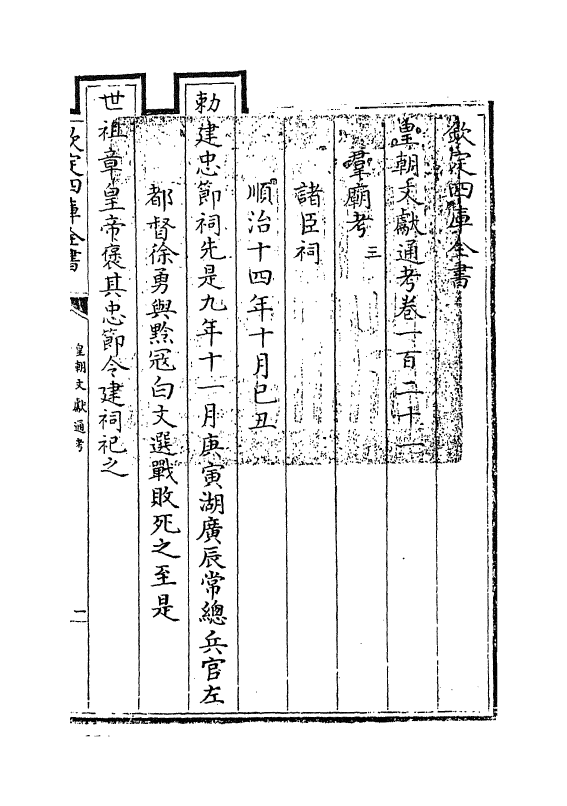 欽定四庫全書
皇朝文獻通考卷一百二十一
羣廟考三
諸臣祠
順治十四年十月己丑
勅建忠節祠先是九年十一月庚寅湖廣辰常總兵官左
都督徐勇與黔寇白文選戰敗死之至是
世祖章皇帝褒其忠節令建祠祀之
欽定四庫全書
皇朝文獻通考